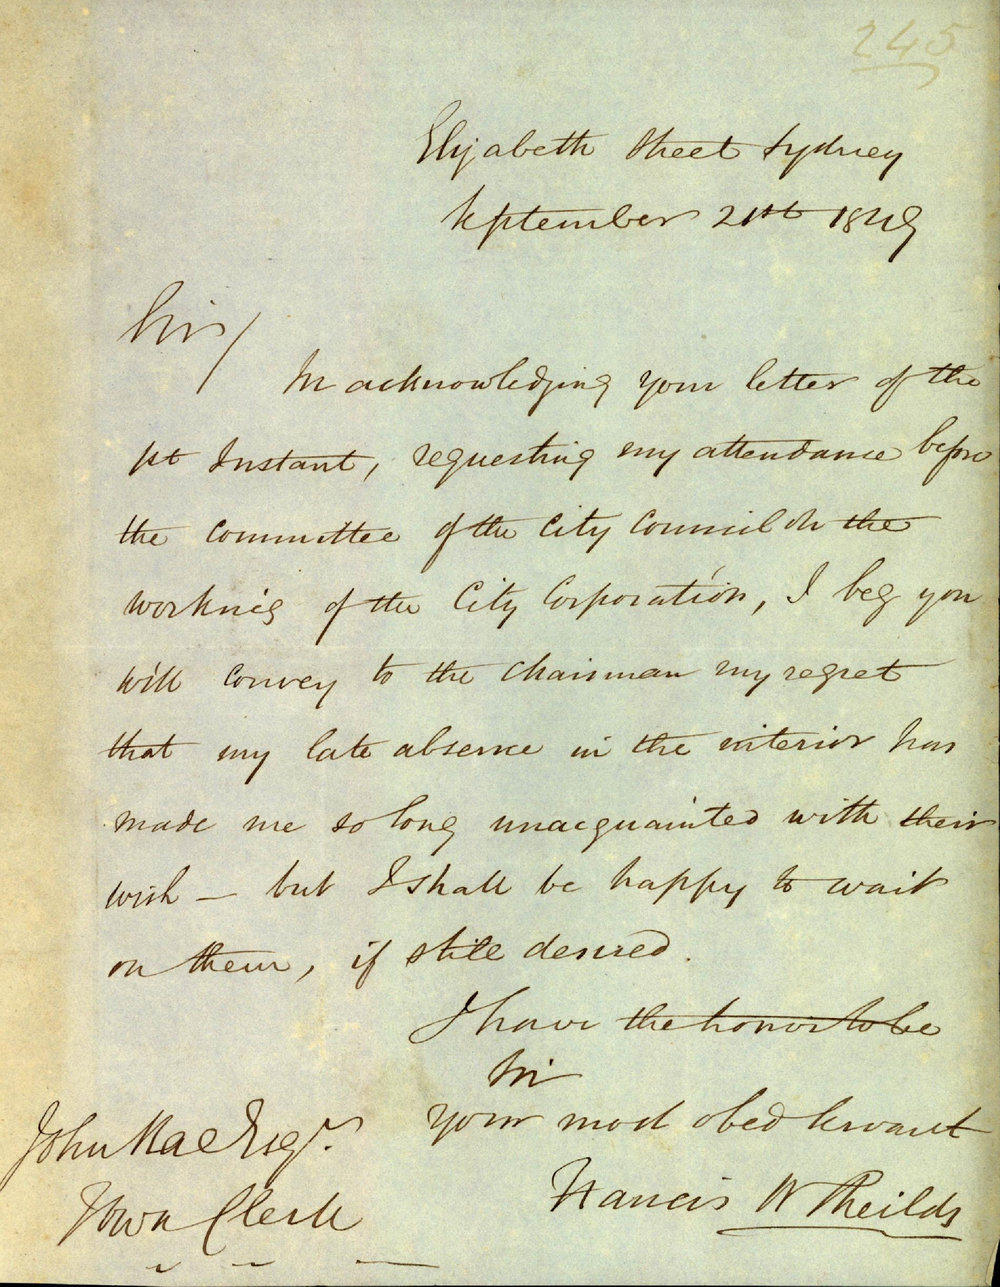 245
Elizabeth Street Sydney
September 21st 1849
Sir/
In acknowledging your letter of the
1st Instant, requesting my attendance before
the committee of the City Council on the
working of the City Corporation, I beg you
will convey to the Chairman my regret
that my late absence in the interior has
made me so long unacquainted with their
wish — but I shall be happy to wait
on them, if still desired.
I have the honor to be
Sir
your most obed servant
Francis W Sheilds
John Rae Esqr.
Town Clerk